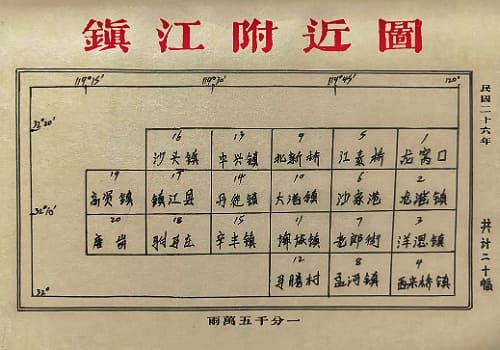 鎮江附近圖
119°15′ 119°30′ 119°45′ 120°
32°20′
16 13 9 5 1
沙头镇 中兴镇 北新桥 江泰桥 龙窝口
19 17 14 10 6 2
高资镇 鎮江县 丹徒镇 大港镇 沙家港
32°10′
20 18 15 11 7 3
辛丰镇 埤城镇 老郎街
32° 12 8 4
孟河镇 西来桥镇
民国二十六年
共计二十幅
一分千五萬兩